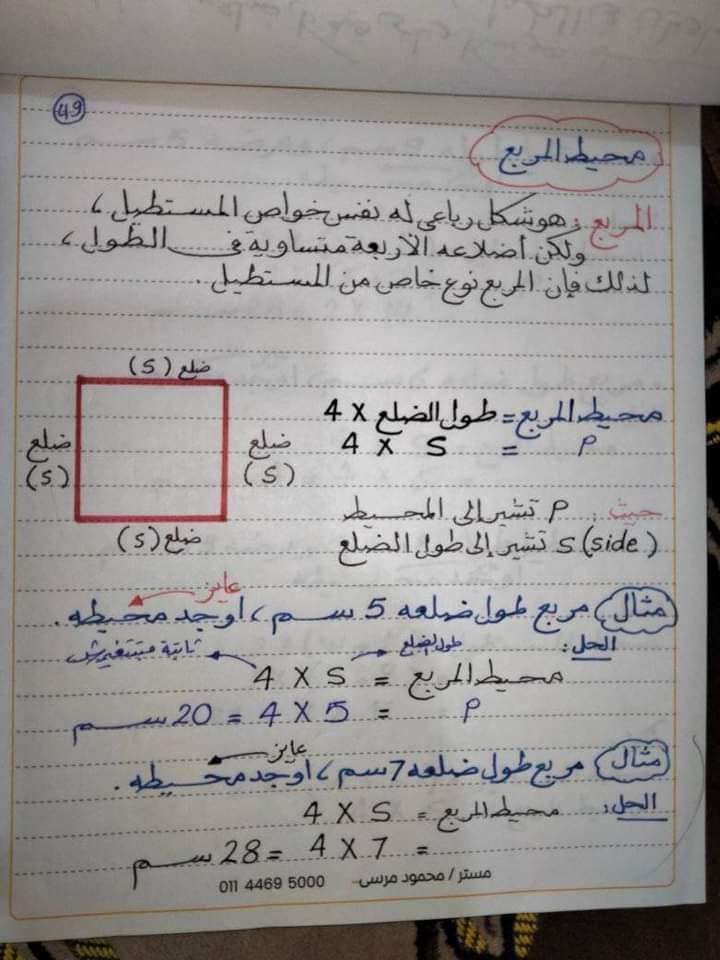 49
محيط المربع
المربع : هو شكل رباعي له نفس خواص المستطيل ،
ولكن أضلاعه الأربعة متساوية فى الطول ،
لذلك فإن المربع نوع خاص من المستطيل .
ضلع (S)
ضلع (S)
ضلع (S)
ضلع (S)
محيط المربع = طول الضلع X 4
P = S X 4
حيث : P تشير إلى المحيط
S (side) تشير إلى طول الضلع
عايز
مثال مربع طول ضلعه 5 سم ، اوجد محيطه .
الحل : طول الضلع ثابتة مبتتغيرش
محيط المربع = S X 4
P = 5 X 4 = 20 سم
عايز
مثال مربع طول ضلعه 7 سم ، اوجد محيطه .
الحل : محيط المربع = S X 4
= 7 X 4 = 28 سم
مستر / محمود مرسى 011 4469 5000